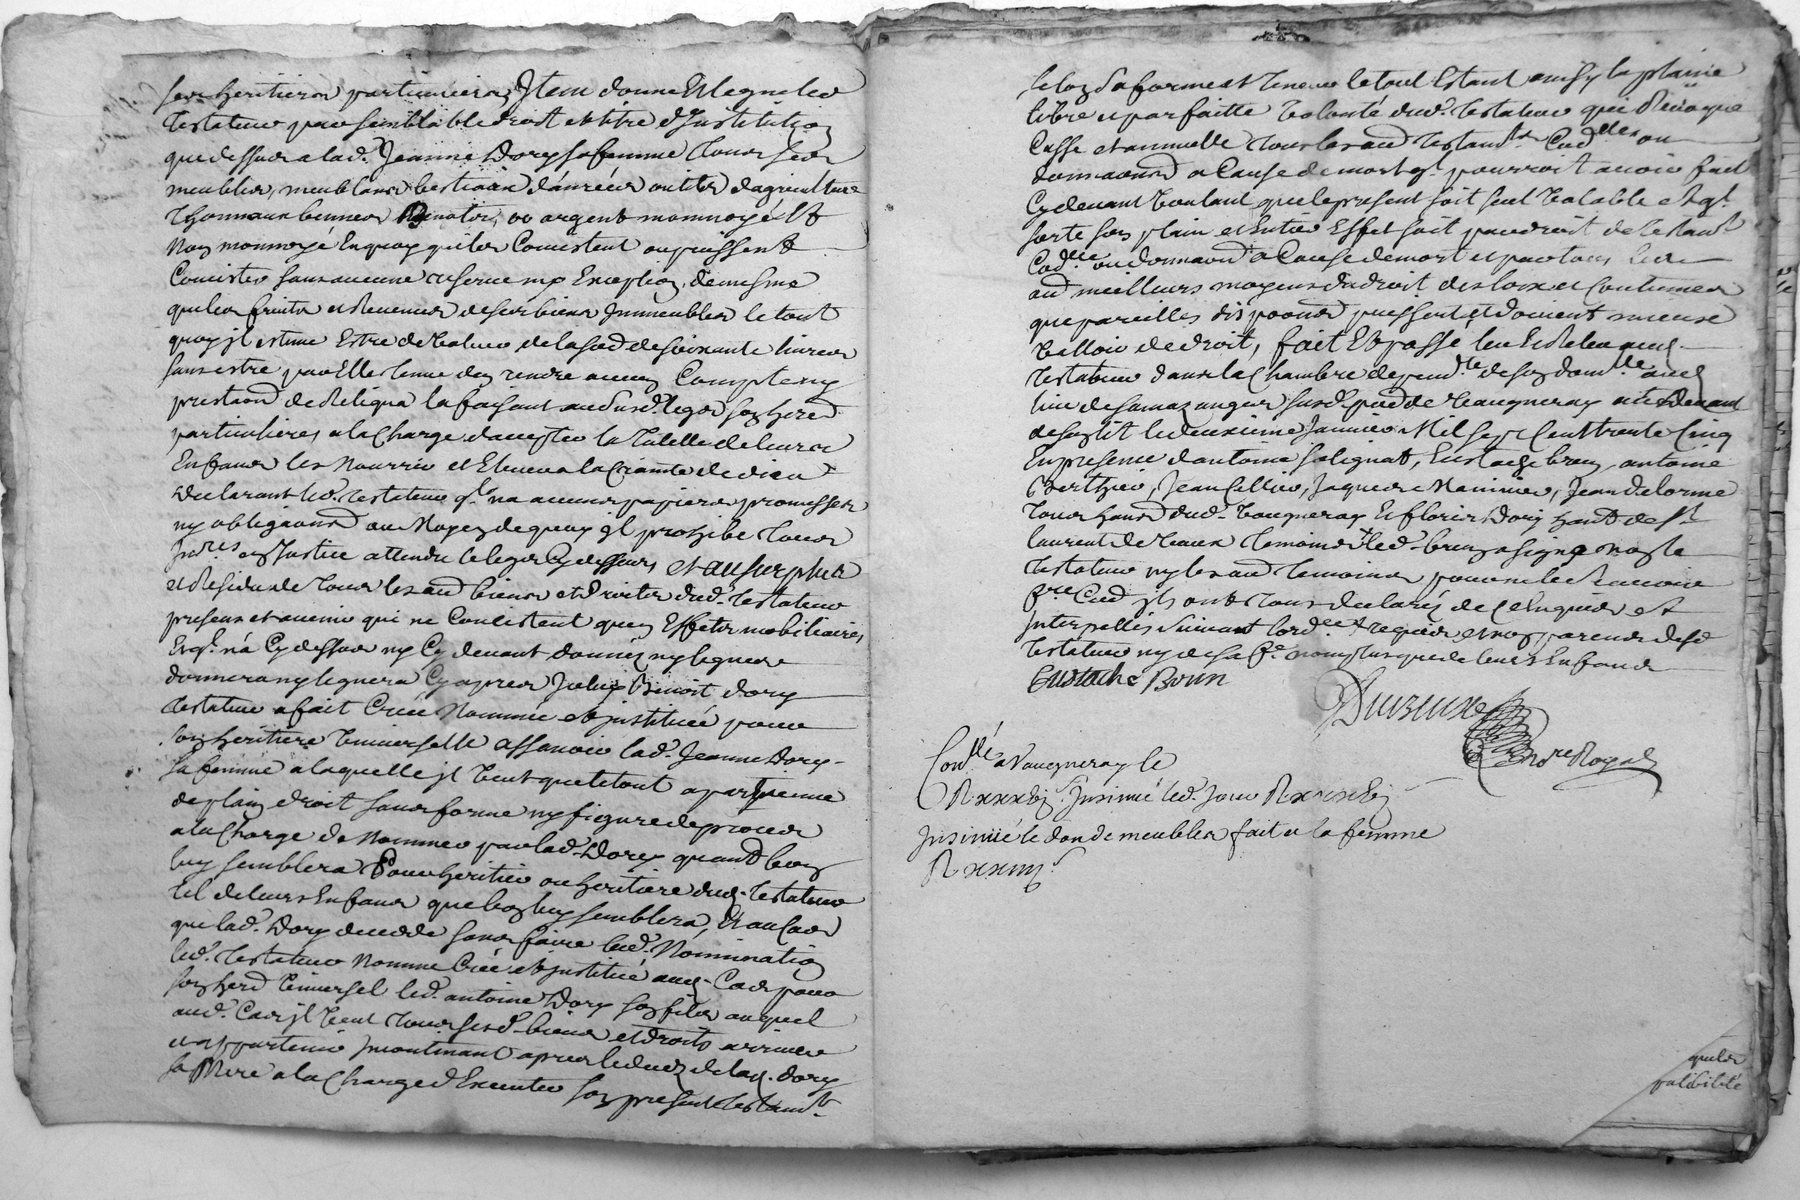 ses heritiers particuliers, Item donne et legue led
testateur par semblable droit et titre d'Institution
que dessus a lad. Jeanne Dory sa femme tous ses
meubles, meublans bestiaux danrées outils dagriculture
thonneaux bennes, or argent monnoyé et
non monnoyé en quoy quils Consistent ou puissent
Consister sans aucune reserve ny Exception, de mesme
que les fruits et Revenus de ses biens Immeubles le tout
quoy il estime Estre de valleur de la so.e de soixante livres
sans estre par Elle tenue den rendre aucun Compte ny
prestaon de Reliqua la faisant au susd. legs son hered.
particuliere, a la Charge daccepter la Tutelle de leurs
Enfans les Nourrir et Elever a la Crainte de dieu
declarant led. testateur ql. na aucuns papiers promesses
ny obligaons au Moyen de quoy il prohibe tous
Inv.res en Justice attendu le legs Cy dessus et au surplus
et Residu de tous les aud. biens et droits dud. testateur
presens et avenir qui ne Consistent quen Effets mobiliaires
Et ql. n'a Cy dessus ny Cy devant donné ny legué ne
donnera ny leguera Cy apres Iceluy Benoit Dory
testateur a fait Creé Nommée et instituée pour
son heritiere universelle assavoir lad. Jeanne Dory
sa femme a laquelle il veut que le tout apartienne
de plain droit sans forme ny figure de proces
a la Charge de Nommer par lad. Dory quand bon
luy semblera Pour heritier ou heritiere dud. testateur
tel de leurs Enfans que bon luy semblera, Et au Cas
que lad. Dory decede sans faire lad. Nomination
led. testateur Nomme Créé et institué aud. Cas pour
son hered universel led. antoine Dory son fils auquel
aud. Cas il veut tous sesd. biens et droits arriver
et appartenir incontinant apres le deces de lad. Dory
sa Mere a la Charge d'Executer son present testam.t
selon sa forme et teneur le tout Estant ainsy la plaine
libre et parfaitte volonté dud. testateur qui Revoque
Casse et annulle tous les aud. testam.ts Cod.lles ou
donnaons a Cause de mort ql. pourroit avoir fait
Cy devant voulant que le present soit seul valable et ql.
sorte son plain et Entier Effet soit par droit de testam.t
Cod.lle ou donnaon a Cause de mort et par tous les
aud. meilleurs moyens du droit des loix et Coutumes
que pareilles dispoons puissent et doivent mieux
valloir de droit, fait Et passé leu et Releu aud.
testateur dans la Chambre de son dom.lle aud.
lieu susd. par.se de Vaugneray au devant
de son lit le deuxieme Janvier Mil sept Cent trente Cinq
En presence dantoine Salignat, Eustache brun, antoine
Berthier, Jean Cellier, Jaques Maninier, Jean Delorme
tous hand. dud. Vaugneray Et florier Dory hand. de St
laurent de Vaux temoins et led. brun a signé non le
testateur ny les aud. temoins pour ne le scavoir
Cued ils ont tous declaré de Ce Enquis et
interpellés suivant lord.ce requis et non parens desd.
testateur ny de sa fe. non plus que de leurs Enfans
Eustache Brun
No.re Royal
Con.llé a Vaugneray le
R. xxx Insinué led. Jour R.
insinué le don de meubles fait a la femme
R. xxiiij s.
que les